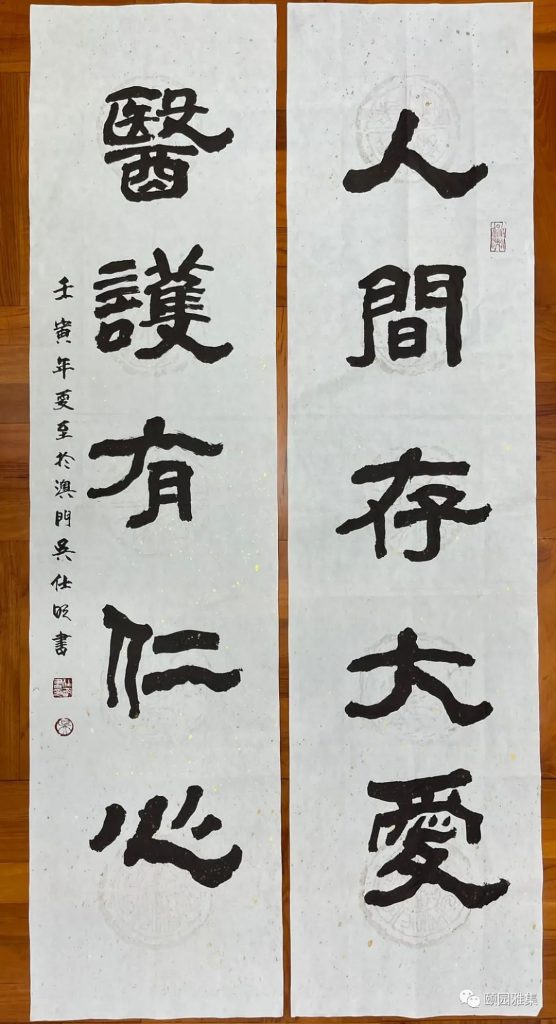 人間存大愛
醫護有仁心
壬寅年夏至於澳門吳仕明書
颐园雅集